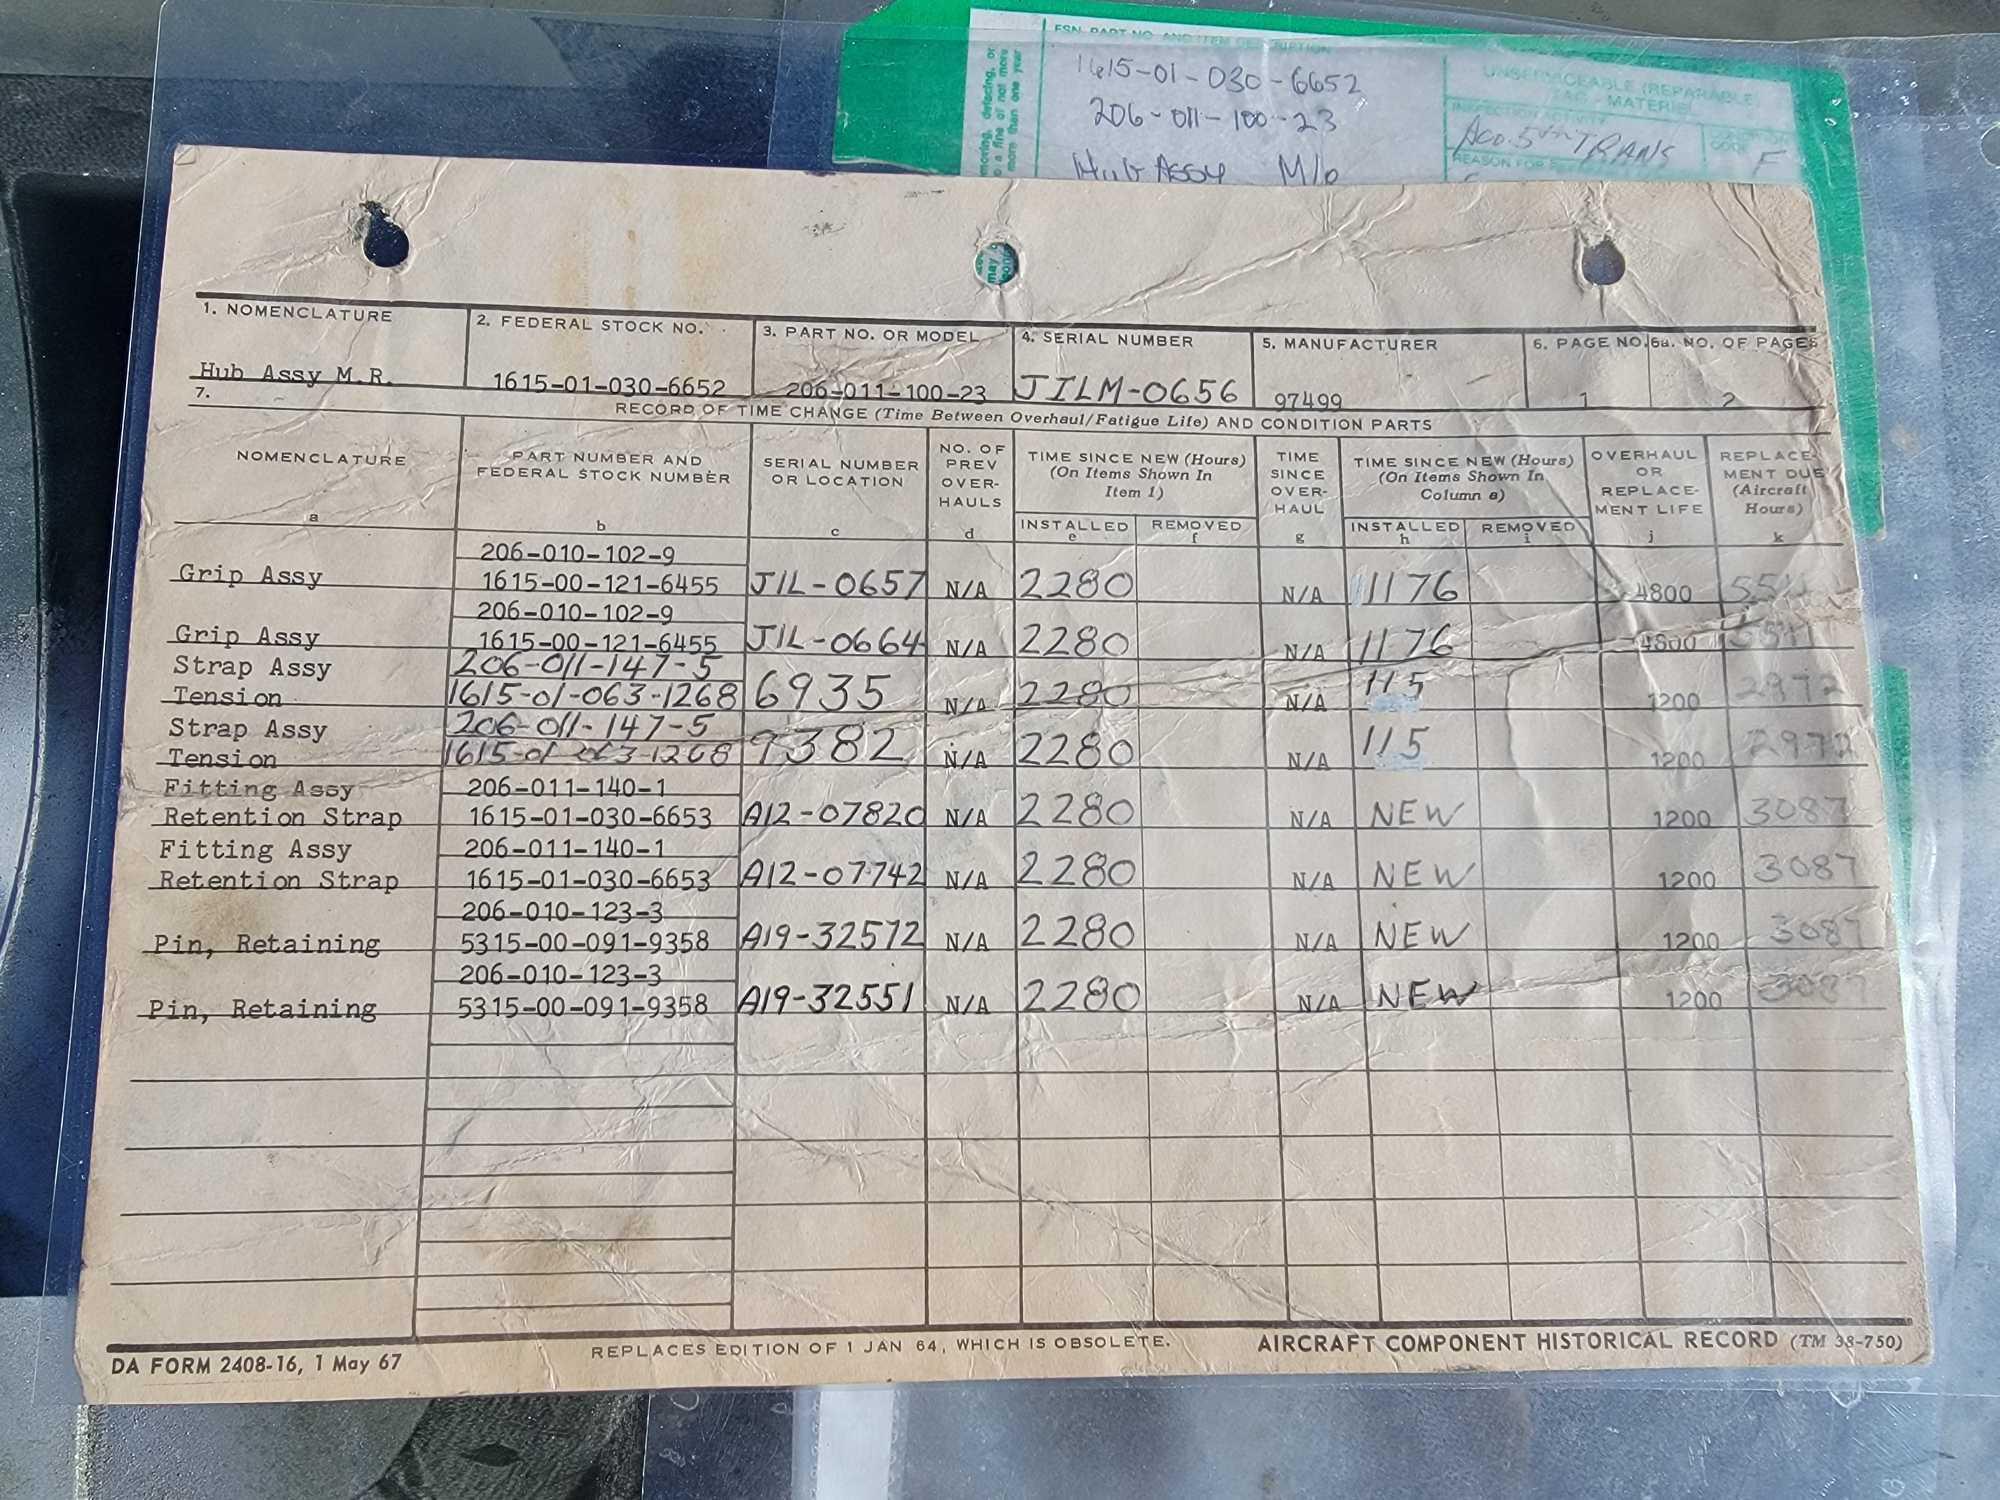 FSN, PART NO. AND ITEM DESCRIPTION
1615-01-030-6652
206-011-100-23
Hub Assy M/R
moving, defacing, or
a fine of not more
more than one year
UNSERVICEABLE (REPARABLE)
TAG - MATERIEL
INSPECTION ACTIVITY
TRANS
CODE
F
REASON FOR
may
1. NOMENCLATURE
Hub Assy M.R.
2. FEDERAL STOCK NO.
1615-01-030-6652
3. PART NO. OR MODEL
206-011-100-23
4. SERIAL NUMBER
JILM-0656
5. MANUFACTURER
97499
6. PAGE NO.
1
6a. NO. OF PAGES
2
7.
RECORD OF TIME CHANGE (Time Between Overhaul/Fatigue Life) AND CONDITION PARTS
NOMENCLATURE
a
PART NUMBER AND
FEDERAL STOCK NUMBER
b
SERIAL NUMBER
OR LOCATION
c
NO. OF
PREV
OVER-
HAULS
d
TIME SINCE NEW (Hours)
(On Items Shown In
Item 1)
INSTALLED
e
REMOVED
f
TIME
SINCE
OVER-
HAUL
g
TIME SINCE NEW (Hours)
(On Items Shown In
Column a)
INSTALLED
h
REMOVED
i
OVERHAUL
OR
REPLACE-
MENT LIFE
j
REPLACE-
MENT DUE
(Aircraft
Hours)
k
206-010-102-9
Grip Assy 1615-00-121-6455 JIL-0657 N/A 2280 N/A 1176 4800
206-010-102-9
Grip Assy 1615-00-121-6455 JIL-0664 N/A 2280 N/A 1176 4800
Strap Assy 206-011-147-5
Tension 1615-01-063-1268 6935 N/A 2280 N/A 115 1200 2972
Strap Assy 206-011-147-5
Tension 1615-01-063-1268 9382 N/A 2280 N/A 115 1200 2972
Fitting Assy 206-011-140-1
Retention Strap 1615-01-030-6653 A12-07820 N/A 2280 N/A NEW 1200 3087
Fitting Assy 206-011-140-1
Retention Strap 1615-01-030-6653 A12-07742 N/A 2280 N/A NEW 1200 3087
206-010-123-3
Pin, Retaining 5315-00-091-9358 A19-32572 N/A 2280 N/A NEW 1200 3087
206-010-123-3
Pin, Retaining 5315-00-091-9358 A19-32551 N/A 2280 N/A NEW 1200 3087
DA FORM 2408-16, 1 May 67
REPLACES EDITION OF 1 JAN 64, WHICH IS OBSOLETE.
AIRCRAFT COMPONENT HISTORICAL RECORD (TM 38-750)